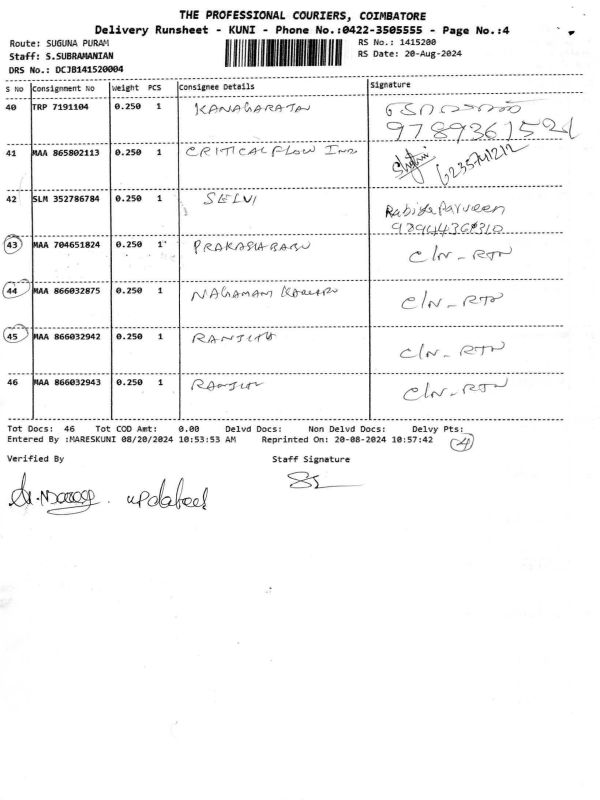 THE PROFESSIONAL COURIERS, COIMBATORE
Delivery Runsheet - KUNI - Phone No.:0422-3505555 - Page No.:4
Route: SUGUNA PURAM RS No.: 1415200
Staff: S.SUBRAMANIAN RS Date: 20-Aug-2024
DRS No.: DCJB141520004
S No Consignment No Weight PCS Consignee Details Signature
40 TRP 7191104 0.250 1 KANAGARAJAN
41 MAA 865802113 0.250 1 CRITICALFLOW IND
42 SLM 352786784 0.250 1 SELVI Rabiya Parveen
43 MAA 704651824 0.250 1 PRAKASHBABU C/N-RTN
44 MAA 866032875 0.250 1 NAGAMANI C/N-RTN
45 MAA 866032942 0.250 1 RANJITH C/N-RTN
46 MAA 866032943 0.250 1 RANJITH C/N-RTN
Tot Docs: 46 Tot COD Amt: 0.00 Delvd Docs: Non Delvd Docs: Delvy Pts:
Entered By :MARESKUNI 08/20/2024 10:53:53 AM Reprinted On: 20-08-2024 10:57:42 4
Verified By Staff Signature
updated